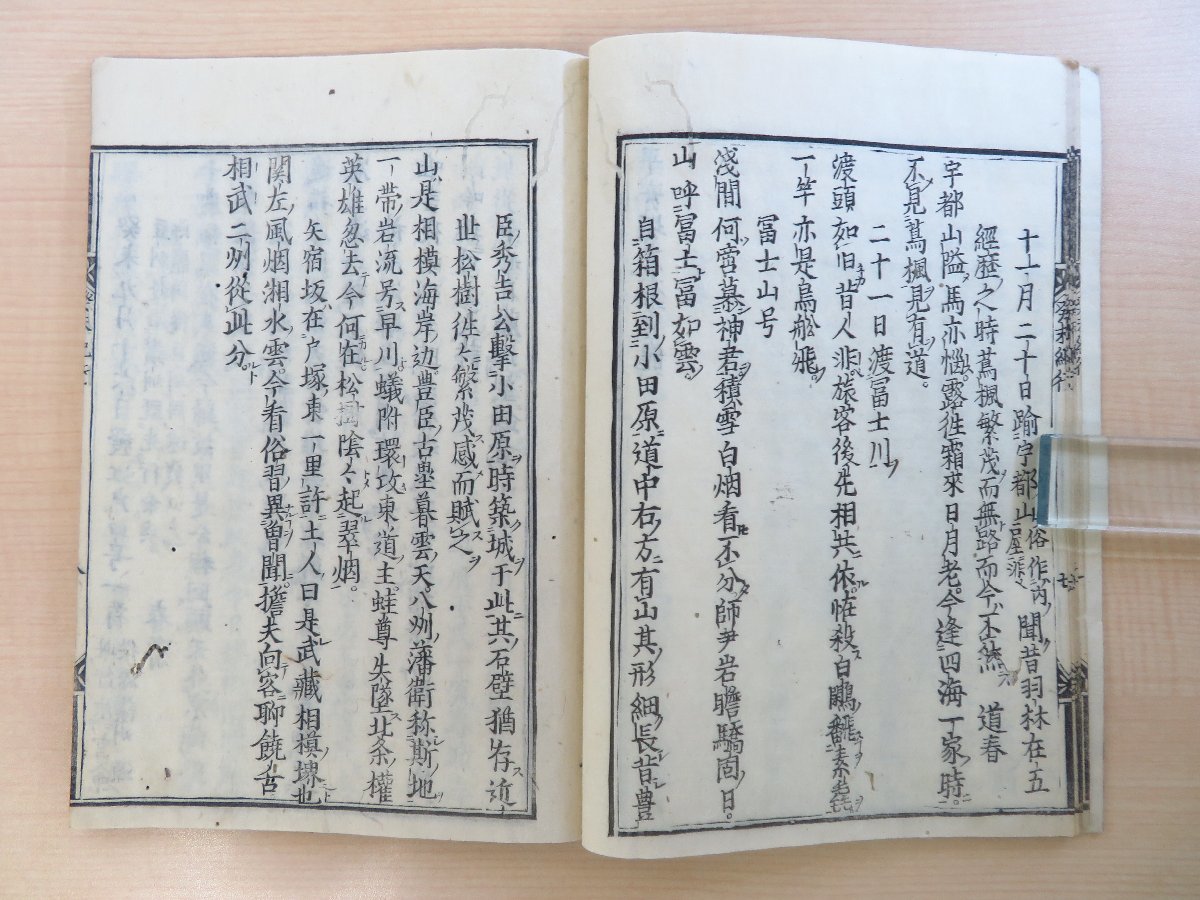 十一月二十日踰宇都山俗作内屋非聞昔羽林在五
經歴之時蔦楓繁茂而無路而今不然 道春
宇都山隘馬亦惱露徃霜來日月老今逢四海一家時
不見蔦楓見有道
二十一日渡冨士川
渡頭如旧昔人非旅客後先相共依恠殺白鷗飜素
一竿亦是鳥舩飛
冨士山号
浅間何啻慕神君積雪白烟看不分師尹岩瞻驕固日
山呼冨士冨如雲
自箱根到小田原道中右方有山其形細長昔豊
臣秀吉公擊小田原時築城于此其石壁猶存近
世松樹徃々繁茂感而賦之
山是相模海岸辺豊臣古壘暮雲天八州藩衛称斯地
一帶岩流号早川蟻附環攻東道主蛙尊失墜北条權
英雄忽去今何在松樹陰々起翠烟
矢宿坂在戸塚東一里許土人曰是武藏相模堺也
関左風烟湘水雲今看俗習異曽聞擔夫向客聊饒舌
相武二州從此分